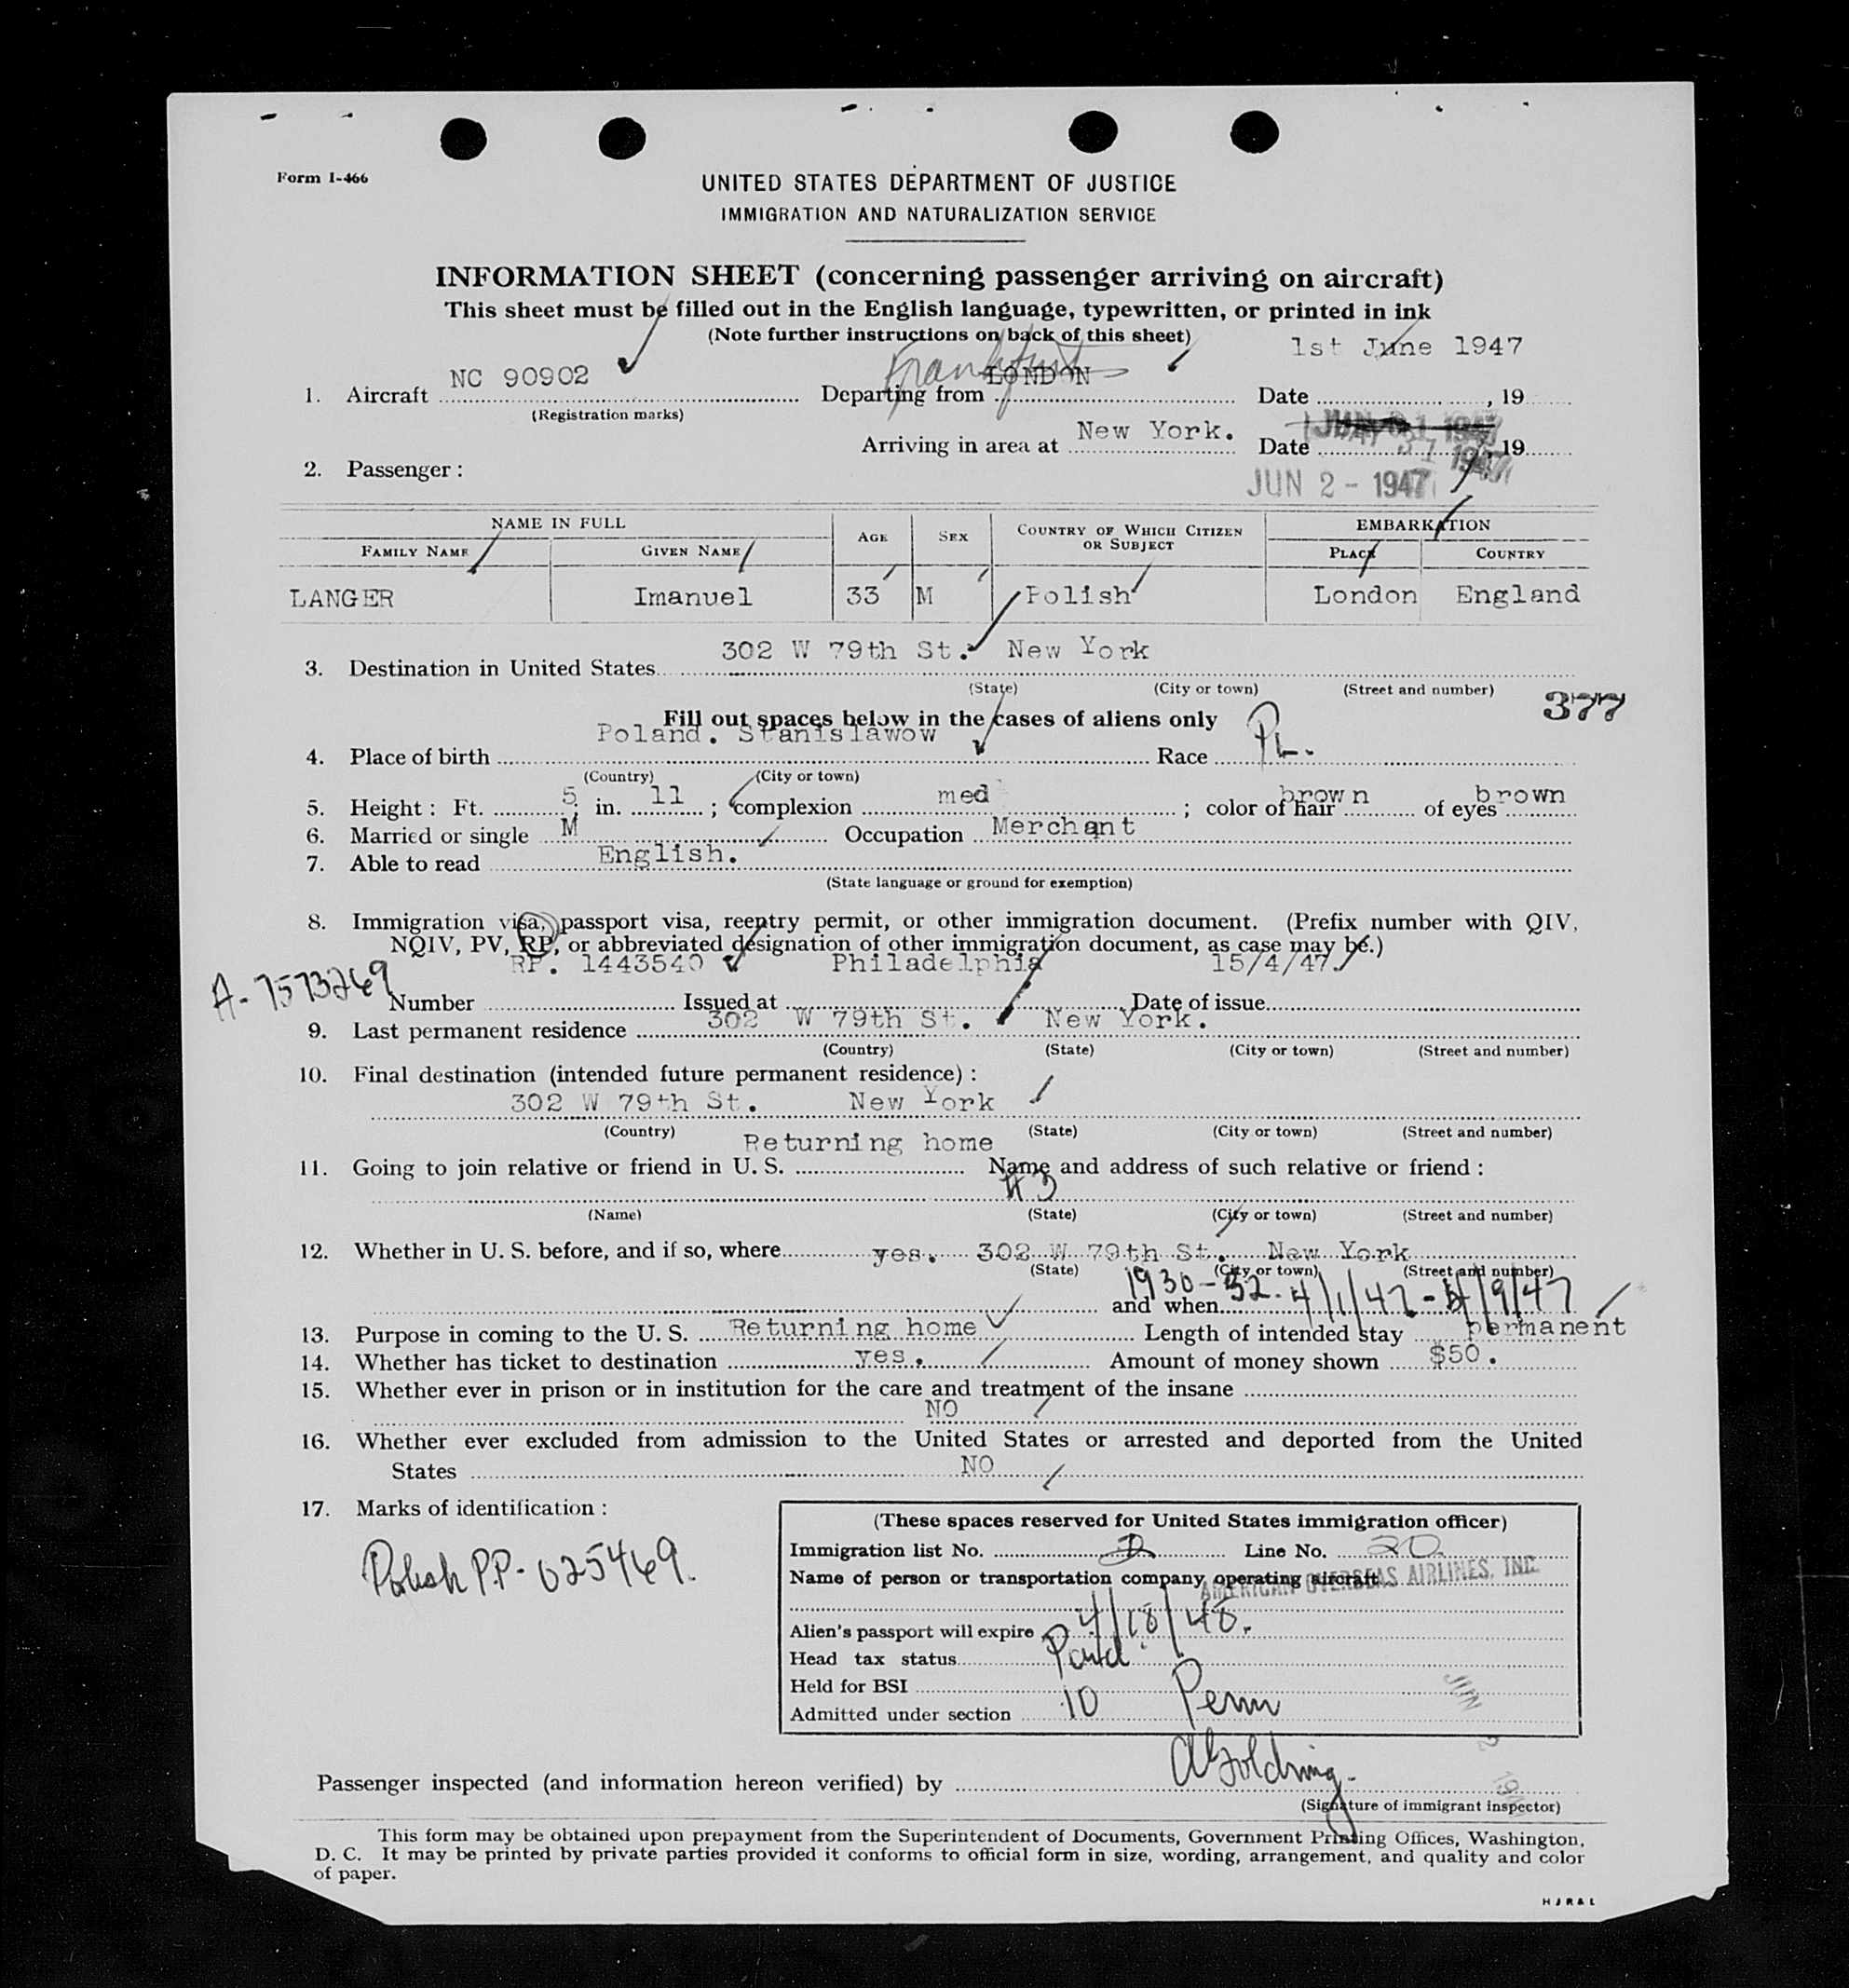 Form I-466
UNITED STATES DEPARTMENT OF JUSTICE
IMMIGRATION AND NATURALIZATION SERVICE
INFORMATION SHEET (concerning passenger arriving on aircraft)
This sheet must be filled out in the English language, typewritten, or printed in ink
(Note further instructions on back of this sheet)
1st June 1947
1. Aircraft NC 90902 Departing from Frankfurt LONDON Date , 19
(Registration marks)
Arriving in area at New York. Date , 19
JUN 2 - 1947
2. Passenger :
NAME IN FULL AGE SEX COUNTRY OF WHICH CITIZEN OR SUBJECT EMBARKATION
FAMILY NAME GIVEN NAME PLACE COUNTRY
LANGER Imanuel 33 M Polish London England
3. Destination in United States 302 W 79th St. New York
(State) (City or town) (Street and number)
377
Fill out spaces below in the cases of aliens only
4. Place of birth Poland. Stanislawow Race PL.
(Country) (City or town)
5. Height : Ft. 5 ; in. 11 ; complexion med ; color of hair brown of eyes brown
6. Married or single M Occupation Merchant
7. Able to read English.
(State language or ground for exemption)
8. Immigration visa, passport visa, reentry permit, or other immigration document. (Prefix number with QIV,
NQIV, PV, RP, or abbreviated designation of other immigration document, as case may be.)
A-7573269
Number RP. 1443540 Issued at Philadelphia Date of issue 15/4/47.
9. Last permanent residence 302 W 79th St. New York.
(Country) (State) (City or town) (Street and number)
10. Final destination (intended future permanent residence) :
302 W 79th St. New York
(Country) (State) (City or town) (Street and number)
11. Going to join relative or friend in U. S. Returning home Name and address of such relative or friend :
#3
(Name) (State) (City or town) (Street and number)
12. Whether in U. S. before, and if so, where yes. 302 W 79th St. New York
(State) (City or town) (Street and number)
and when 1930-32. 4/1/47 - /9/47
13. Purpose in coming to the U. S. Returning home Length of intended stay permanent
14. Whether has ticket to destination yes. Amount of money shown $50.
15. Whether ever in prison or in institution for the care and treatment of the insane
NO
16. Whether ever excluded from admission to the United States or arrested and deported from the United
States NO
17. Marks of identification :
Polish P.P- 025469.
(These spaces reserved for United States immigration officer)
Immigration list No. 2 Line No. 20
Name of person or transportation company operating aircraft AMERICAN OVERSEAS AIRLINES, INC.
Alien's passport will expire 4/18/48.
Head tax status Paid
Held for BSI
Admitted under section 10 Perm
JUN 2 194
Passenger inspected (and information hereon verified) by A Goldring
(Signature of immigrant inspector)
This form may be obtained upon prepayment from the Superintendent of Documents, Government Printing Offices, Washington,
D. C. It may be printed by private parties provided it conforms to official form in size, wording, arrangement, and quality and color
of paper.
H J R & L